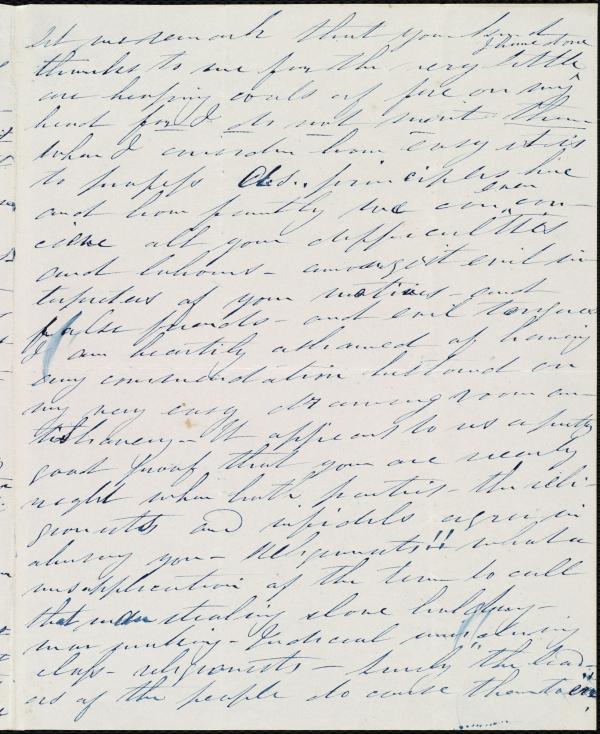 let me remark that your kind
I have done
thanks to me for the very little
are heaping coals of fire on my
head for I do not merit them
when I consider how easy it is
to profess &c.. principles here
even
and how faintly we can con-
cieve all your difficulties
and labours - amongst evil in-
terpreters of your motives - and
false friends - and evil tongues
I am heartily ashamed of having
any commendation bestowed on
my very easy drawing room an-
tislavery - It appears to us a pretty
good proof that you are nearly
right when both parties - the reli-
gionists and infidels agree in
abusing you - Religionists!! what a
misapplication of the term to call
that man stealing slave holding -
war making - Judicial murdering
class - religionists - Surely "the lead-
ers of the people do cause them to err"!